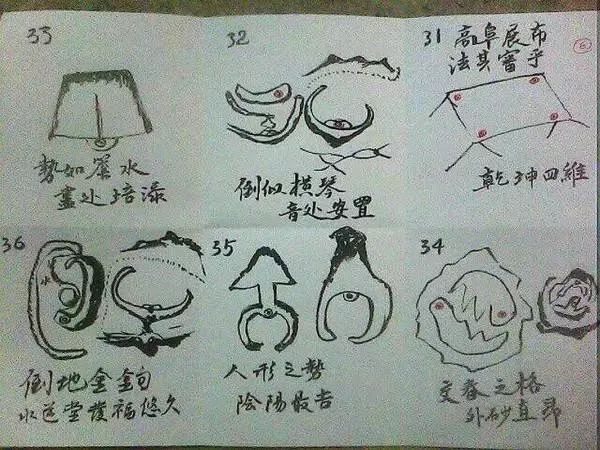 33
勢如水
盡处培添
32
倒似横琴
音处安置
31
高阜展布
法其審乎
6
乾坤四維
36
倒地金鈎
水堂福悠久
35
人形之勢
陰陽最吉
34
交之格
外砂直昂